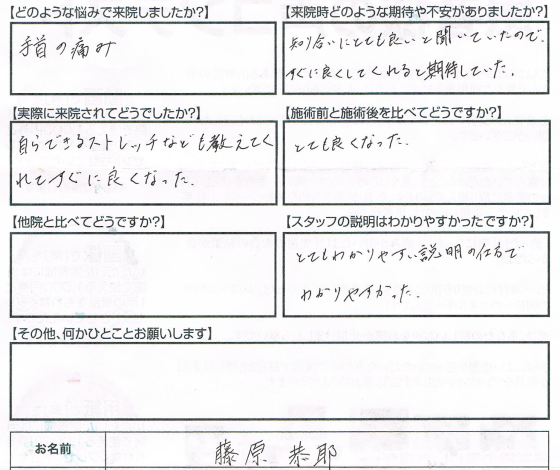 【どのような悩みで来院しましたか?】
手首の痛み
【来院時どのような期待や不安がありましたか?】
知り合いにとても良いと聞いていたので、
すぐに良くしてくれると期待していた。
【実際に来院されてどうでしたか?】
自らできるストレッチなども教えてく
れてすぐに良くなった。
【施術前と施術後を比べてどうですか?】
とても良くなった。
【他院と比べてどうですか?】
【スタッフの説明はわかりやすかったですか?】
とてもわかりやすい説明の仕方で
わかりやすかった。
【その他、何かひとことお願いします】
お名前
藤原 恭耶